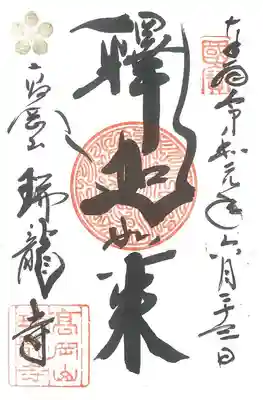 奉拝 令和元年六月二十三日
国宝
釋迦如来
高岡山 瑞龍寺
高岡山
瑞龍寺